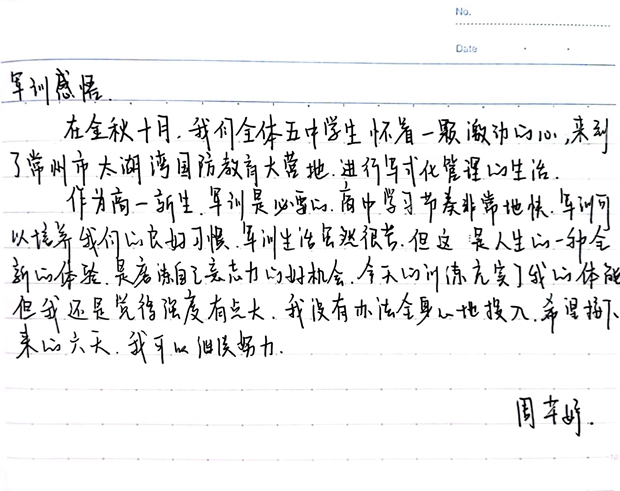 No.
Date
军训感悟.
在金秋十月,我们全体五中学生怀着一颗激动的心,来到
了常州市太湖湾国防教育大营地.进行军式化管理的生活.
作为高一新生.军训是必要的.高中学习节奏非常地快.军训可
以培养我们的良好习惯.军训生活虽然很苦.但这是人生的一种全
新的体验.是磨练自己意志力的好机会.今天的训练充实了我的体能
但我还是觉得强度有点大.我没有办法全身心地投入.希望接下
来的六天.我可以继续努力.
周